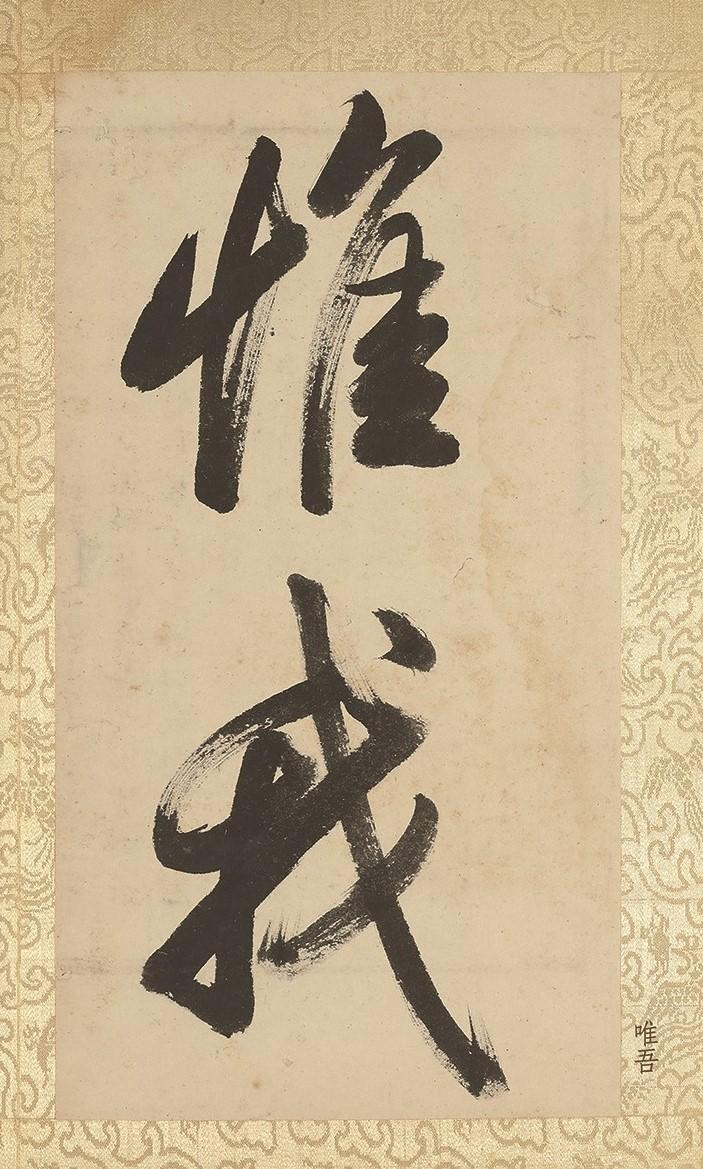 惟
我
唯吾